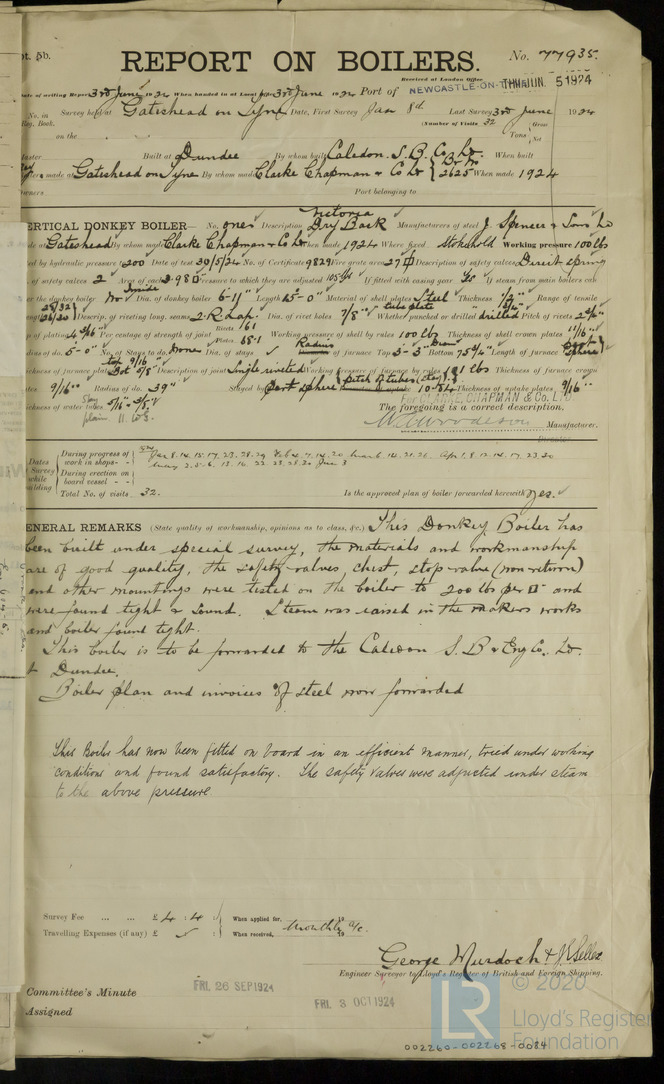 pt. 5b.
REPORT ON BOILERS.
No. 77935.
Received at London Office
THU. JUN. 5 1924
Date of writing Report 3rd June 1924 When handed in at Local Office 3rd June 1924 Port of NEWCASTLE-ON-T
No. in Survey held at Gateshead on Tyne Date, First Survey Jan 8th Last Survey 3rd June 1924
Reg. Book. (Number of Visits 32)
on the Tons Gross Net
Master Built at Dundee By whom built Caledon. S. B. Co Ld When built
made at Gateshead on Tyne By whom made Clarke Chapman & Co Ld 2625 When made 1924
Owners Port belonging to
VERTICAL DONKEY BOILER— No. one Description Victoria Dry Back Manufacturers of steel J. Spencer & Sons Ld
Made at Gateshead By whom made Clarke Chapman & Co Ld When made 1924 Where fixed Stokehold Working pressure 100 lbs
tested by hydraulic pressure to 200 Date of test 30/5/24 No. of Certificate 9829 Fire grate area 27 Description of safety valves Direct spring
No. of safety valves 2 Area of each 3.98 Pressure to which they are adjusted 105 lbs If fitted with easing gear Yes If steam from main boilers can
enter the donkey boiler No Dia. of donkey boiler 6-11" Length 15-0" Material of shell plates Steel Thickness Range of tensile
strength 28/32 26/30 Descrip. of riveting long. seams 2 R Lap. Dia. of rivet holes 7/8" Whether punched or drilled drilled Pitch of rivets
Lap of plating Per centage of strength of joint Rivets 61 Plates 68.1 Working pressure of shell by rules 100 lbs Thickness of shell crown plates 11/16"
Radius of do. 5-0" No. of Stays to do. None Dia. of stays Radius of furnace Top 3-3" Bottom Length of furnace
Thickness of furnace plates Top 9/16" Bot 5/8" Description of joint Single riveted Working pressure of furnace by rules 101 lbs Thickness of furnace crown
plates 9/16" Radius of do. 39" Stayed by Part sphere Thickness of uptake plates 9/16"
Thickness of water tubes Stay 5/16" - 3/8" plain 11 W.G.
For CLARKE, CHAPMAN & Co. LTD.
The foregoing is a correct description,
W. Woodeson Manufacturer.
Director
Dates of Survey while building
During progress of work in shops - - Jan 8. 14. 15. 17. 23. 28. 29 Feb 4. 7. 14. 20 March 6. 14. 21. 26. April 8. 12. 14. 17. 23. 30
May 2. 5. 6. 13. 16. 22. 23. 28. 30 June 3
During erection on board vessel - -
Total No. of visits 32. Is the approved plan of boiler forwarded herewith yes.
GENERAL REMARKS (State quality of workmanship, opinions as to class, &c.) This Donkey Boiler has
been built under special survey, the materials and workmanship
are of good quality, the safety valves, chest, stop valve (non return)
and other mountings were tested on the boiler to 200 lbs per □" and
were found tight & sound. Steam was raised in the makers works
and boiler found tight.
This boiler is to be forwarded to the Caledon S. B & Eng Co. Ld.
at Dundee.
Boiler plan and invoices of steel now forwarded
This Boiler has now been fitted on board in an efficient manner, tried under working
conditions and found satisfactory. The safety valves were adjusted under steam
to the above pressure
Survey Fee ... ... £ 4 : 4 : When applied for, Monthly a/c. 19
Travelling Expenses (if any) £ When received, 19
George Murdoch & J. K. Sellex
Engineer Surveyor to Lloyd's Register of British and Foreign Shipping.
Committee's Minute
FRI. 26 SEP 1924
FRI. 3 OCT 1924
Assigned
LR
© 2020
Lloyd's Register
Foundation
002260-002268-0084